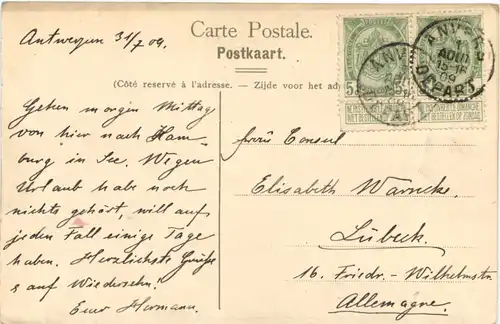 Carte Postale.
Postkaart.
(Côté reservé à l'adresse. – Zijde voor het
Antwerpen 31/7 09.
Gehen morgen Mittag
von hier nach Ham-
burg in See. Wegen
Urlaub habe noch
nichts gehört, will auf
jeden Fall einige Tage
haben. Herzlichste Grüße
auf Wiedersehn.
Euer Hermann.
ANVERS
1
AOUT
15-
09
DEPART
NE PAS LIVRER LE DIMANCHE
NIET BESTELLEN OP ZONDAG
Frau Consul
Elisabeth Warncke.
Lübeck.
16. Friedr.-Wilhelmstr.
Allemagne.